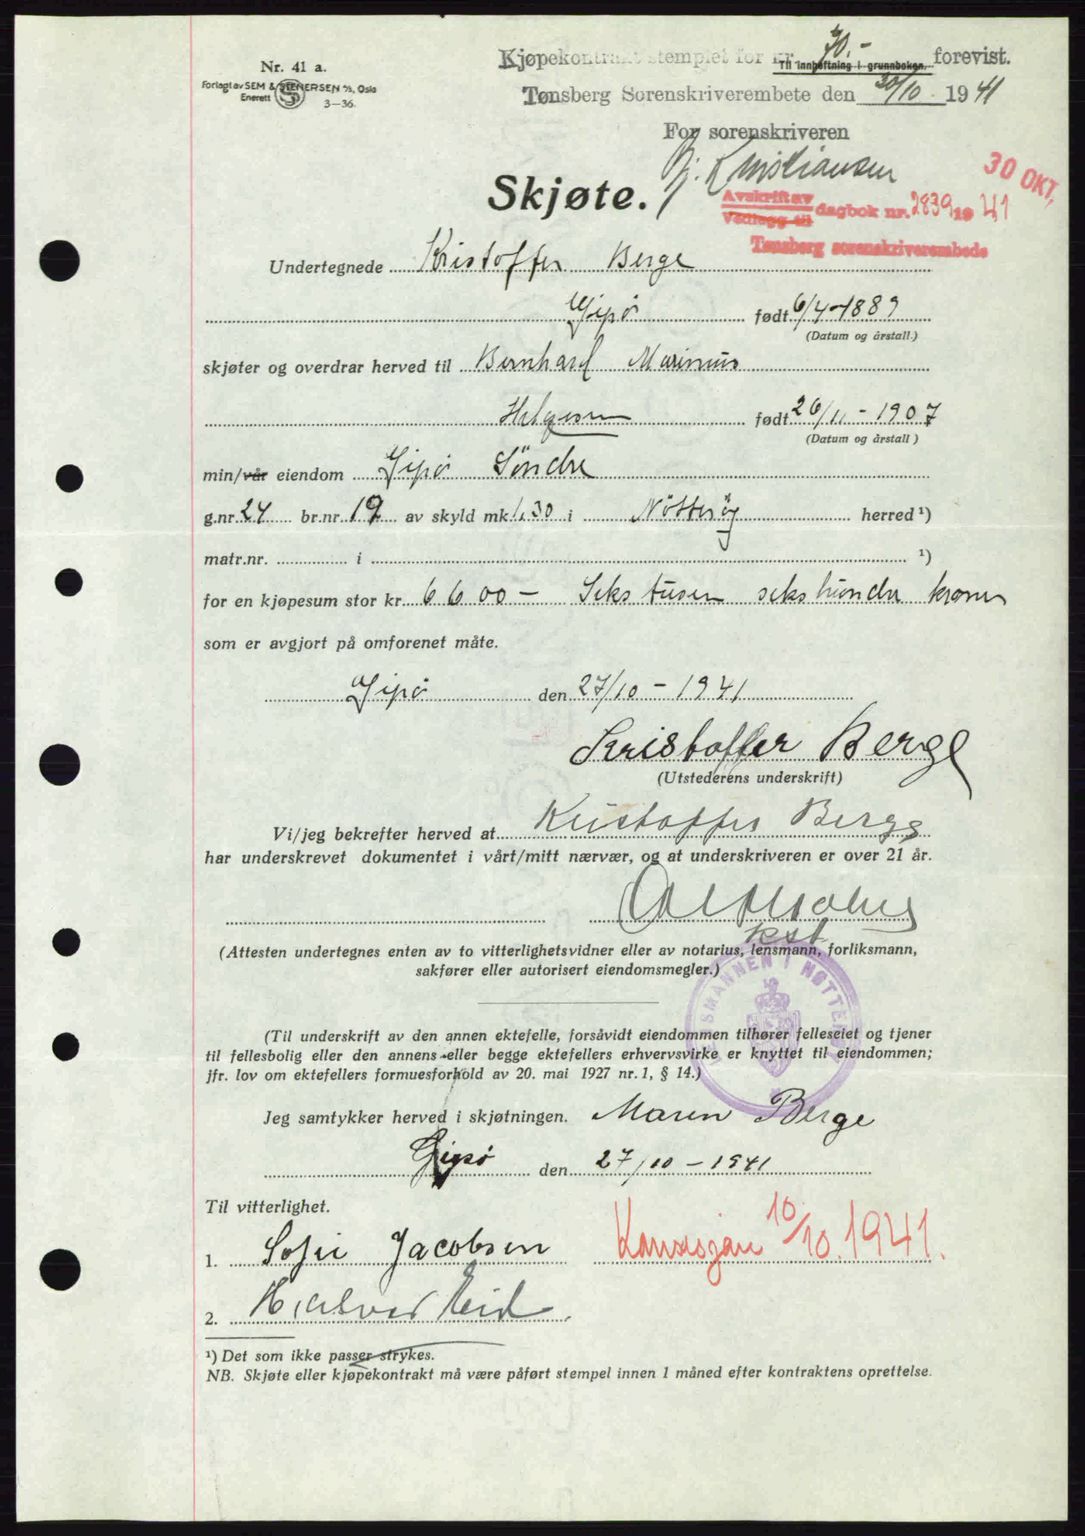 Nr. 41 a.
Forlagt av SEM & STENERSEN A/S, Oslo
Enerett
3-36.
Kjøpekontrakt stemplet for kr. 70.- forevist.
Til innheftning i grunnboken.
Tønsberg Sorenskriverembete den 30/10 1941
For sorenskriveren
Bj. Kristiansen
30 OKT.
Skjøte.
Avskrift av
Vedlegg til dagbok nr. 2839 1941
Tønsberg sorenskriverembede
Undertegnede Kristoffer Berge
Gipø født 6/4-1889
(Datum og årstall.)
skjøter og overdrar herved til Bernhard Marinius
Helgesen født 26/11-1907
(Datum og årstall)
min/vår eiendom Gipø Söndre
g.nr. 24 br.nr. 19 av skyld mk. 1,30 i Nötteröy herred ¹)
matr.nr. i ¹)
for en kjøpesum stor kr. 6600 - Seks tusen seks hundre kroner
som er avgjort på omforenet måte.
Gipø den 27/10-1941
Kristoffer Berge
(Utstederens underskrift)
Vi/jeg bekrefter herved at Kristoffer Berge
har underskrevet dokumentet i vårt/mitt nærvær, og at underskriveren er over 21 år.
(Attesten undertegnes enten av to vitterlighetsvidner eller av notarius, lensmann, forliksmann,
sakfører eller autorisert eiendomsmegler.)
LENSMANNEN I NØTTERØY
(Til underskrift av den annen ektefelle, forsåvidt eiendommen tilhører felleseiet og tjener
til fellesbolig eller den annens eller begge ektefellers erhvervsvirke er knyttet til eiendommen;
jfr. lov om ektefellers formuesforhold av 20. mai 1927 nr. 1, § 14.)
Jeg samtykker herved i skjøtningen. Maren Berge
Gipø den 27/10-1941
Til vitterlighet.
1. Sofie Jacobsen
10/10. 1941.
2. Halvor Eid
¹) Det som ikke passer strykes.
NB. Skjøte eller kjøpekontrakt må være påført stempel innen 1 måned efter kontraktens oprettelse.